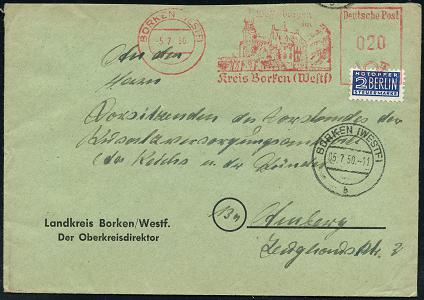 BORKEN (WESTF)
-5.7.50
Kreis Borken (Westf)
Deutsche Post
020
NOTOPFER
2 BERLIN
STEUERMARKE
An den
Herrn
Vorsitzenden des Vorstandes der
Zusatzversorgungsanstalt
des Reichs u. der Länder
BORKEN (WESTF)
05.7.50.-11
b
Landkreis Borken/Westf.
Der Oberkreisdirektor
Amberg